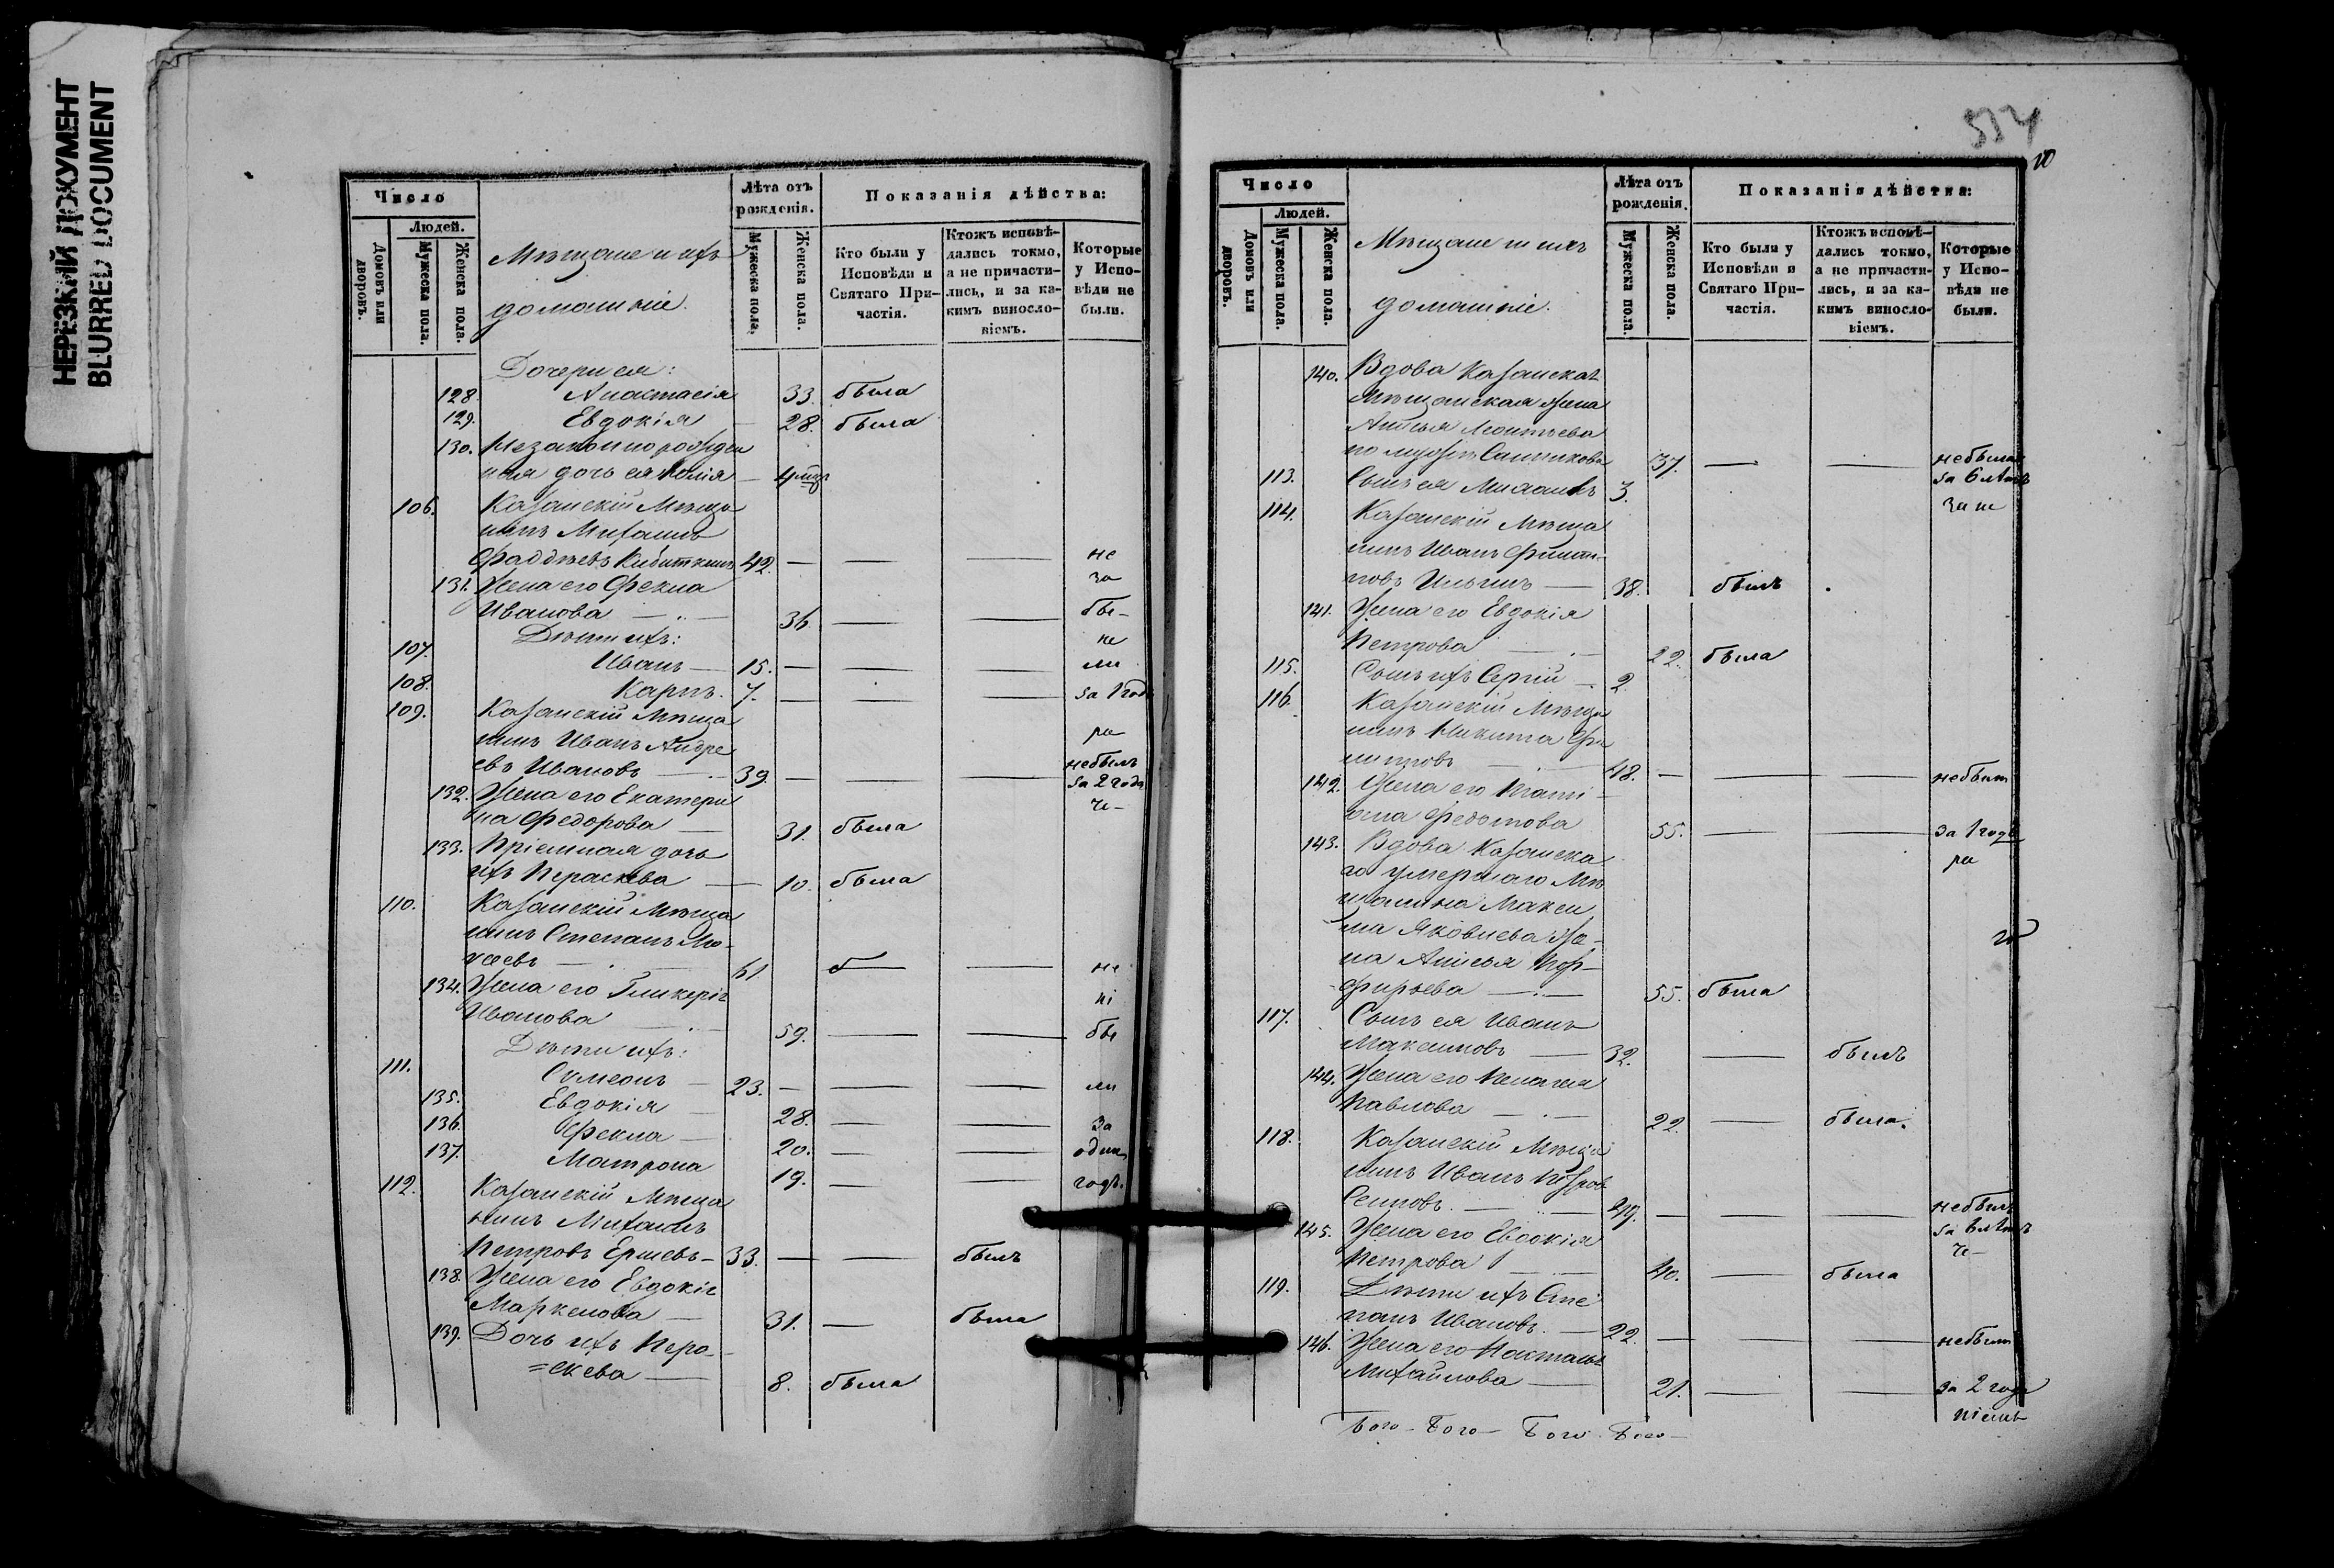 НЕРЕЗКИЙ ДОКУМЕНТ
BLURRED DOCUMENT
Число
Людей.
Домовъ или дворовъ.
Мужеска пола.
Женска пола.
Мѣщане и ихъ
домашніе.
Лѣта отъ рожденія.
Мужеска пола.
Женска пола.
Показанія дѣйства:
Кто были у Исповѣди и Святаго Причастія.
Ктожъ исповѣдались токмо, а не причастились, и за какимъ винословіемъ.
Которые у Исповѣди не были.
Дочери ея:
128. Анастасія 33. была
129. Евдокія — 28. была
130. Незаконнорожден
ная дочь ея — 4
106. Казанскій Мѣща
нинъ Михаилъ
Фаддѣевъ Кибиткинъ 42. — — не
131. Жена его Фекла за
Иванова — 36 — — бы-
Дѣти ихъ: не
107. Иванъ — 15. — — ли
108. Карпъ. 7. — — за 1 годъ
109. Казанскій Мѣща
нинъ Иванъ Андре ра
евъ Ивановъ — 39. — — небылъ
за 2 года
132. Жена его Екатери че-
на Федорова — 31. была
133. Пріемная дочь
ихъ Параскева — 10. была
110. Казанскій Мѣща
нинъ Степанъ Мо-
61 — — не
134. Жена его Гликерія
Иванова — 59. — — бы
Дѣти ихъ:
111. Симеонъ — 23. — — ли
135. Евдокія — 28. — — за
136. Фекла — 20. — — одинъ
137. Матрона 19. — — годъ.
112. Казанскій Мѣща
нинъ Михаилъ
Петровъ Ершевъ — 33. — — былъ
138. Жена его Евдокія
Маркелова — 31. — была
139. Дочь ихъ Пара-
=скева — 8. была
534
Число
Людей.
Домовъ или дворовъ.
Мужеска пола.
Женска пола.
Мѣщане и ихъ
домашніе.
Лѣта отъ рожденія.
Мужеска пола.
Женска пола.
Показанія дѣйства:
Кто были у Исповѣди и Святаго Причастія.
Ктожъ исповѣдались токмо, а не причастились, и за какимъ винословіемъ.
Которые у Исповѣди не были.
140. Вдова Казанская
Мѣщанская жена
Леонтьева
по мужѣ Санникова 37. — — небыла
за 6 лѣтъ
113. Сынъ ея Михаилъ 3.
114. Казанскій Мѣща
нинъ Иванъ Филип-
повъ Ильинъ — 38. былъ
141. Жена его Евдокія
Петрова — 22. была
115. Сынъ ихъ Сергій — 2.
116. Казанскій Мѣща
нинъ Никита Фи
липповъ — 48. — — небыли
142. Жена его
Федотова 55. — — за 1 годъ
ра
143. Вдова Казанска
го умершаго Мѣ
щанина Макси
ма Яковлева Же-
на Анисья Пор-
фирьева — 55. была
117. Сынъ ея Иванъ
Максимовъ — 32. — былъ
144. Жена его Пелагея
Павлова — 22. — была.
118. Казанскій Мѣща
нинъ Иванъ
49. — — небылъ
за 6 лѣтъ
че-
145. Жена его Евдокія
Петрова — 40. — была
119. Дѣти ихъ Сте
панъ Ивановъ. — 22. — — небыли
146. Жена его Наталья
Михайлова — 21. — — за 2 года
Бого- Бого- Бого- Бого-